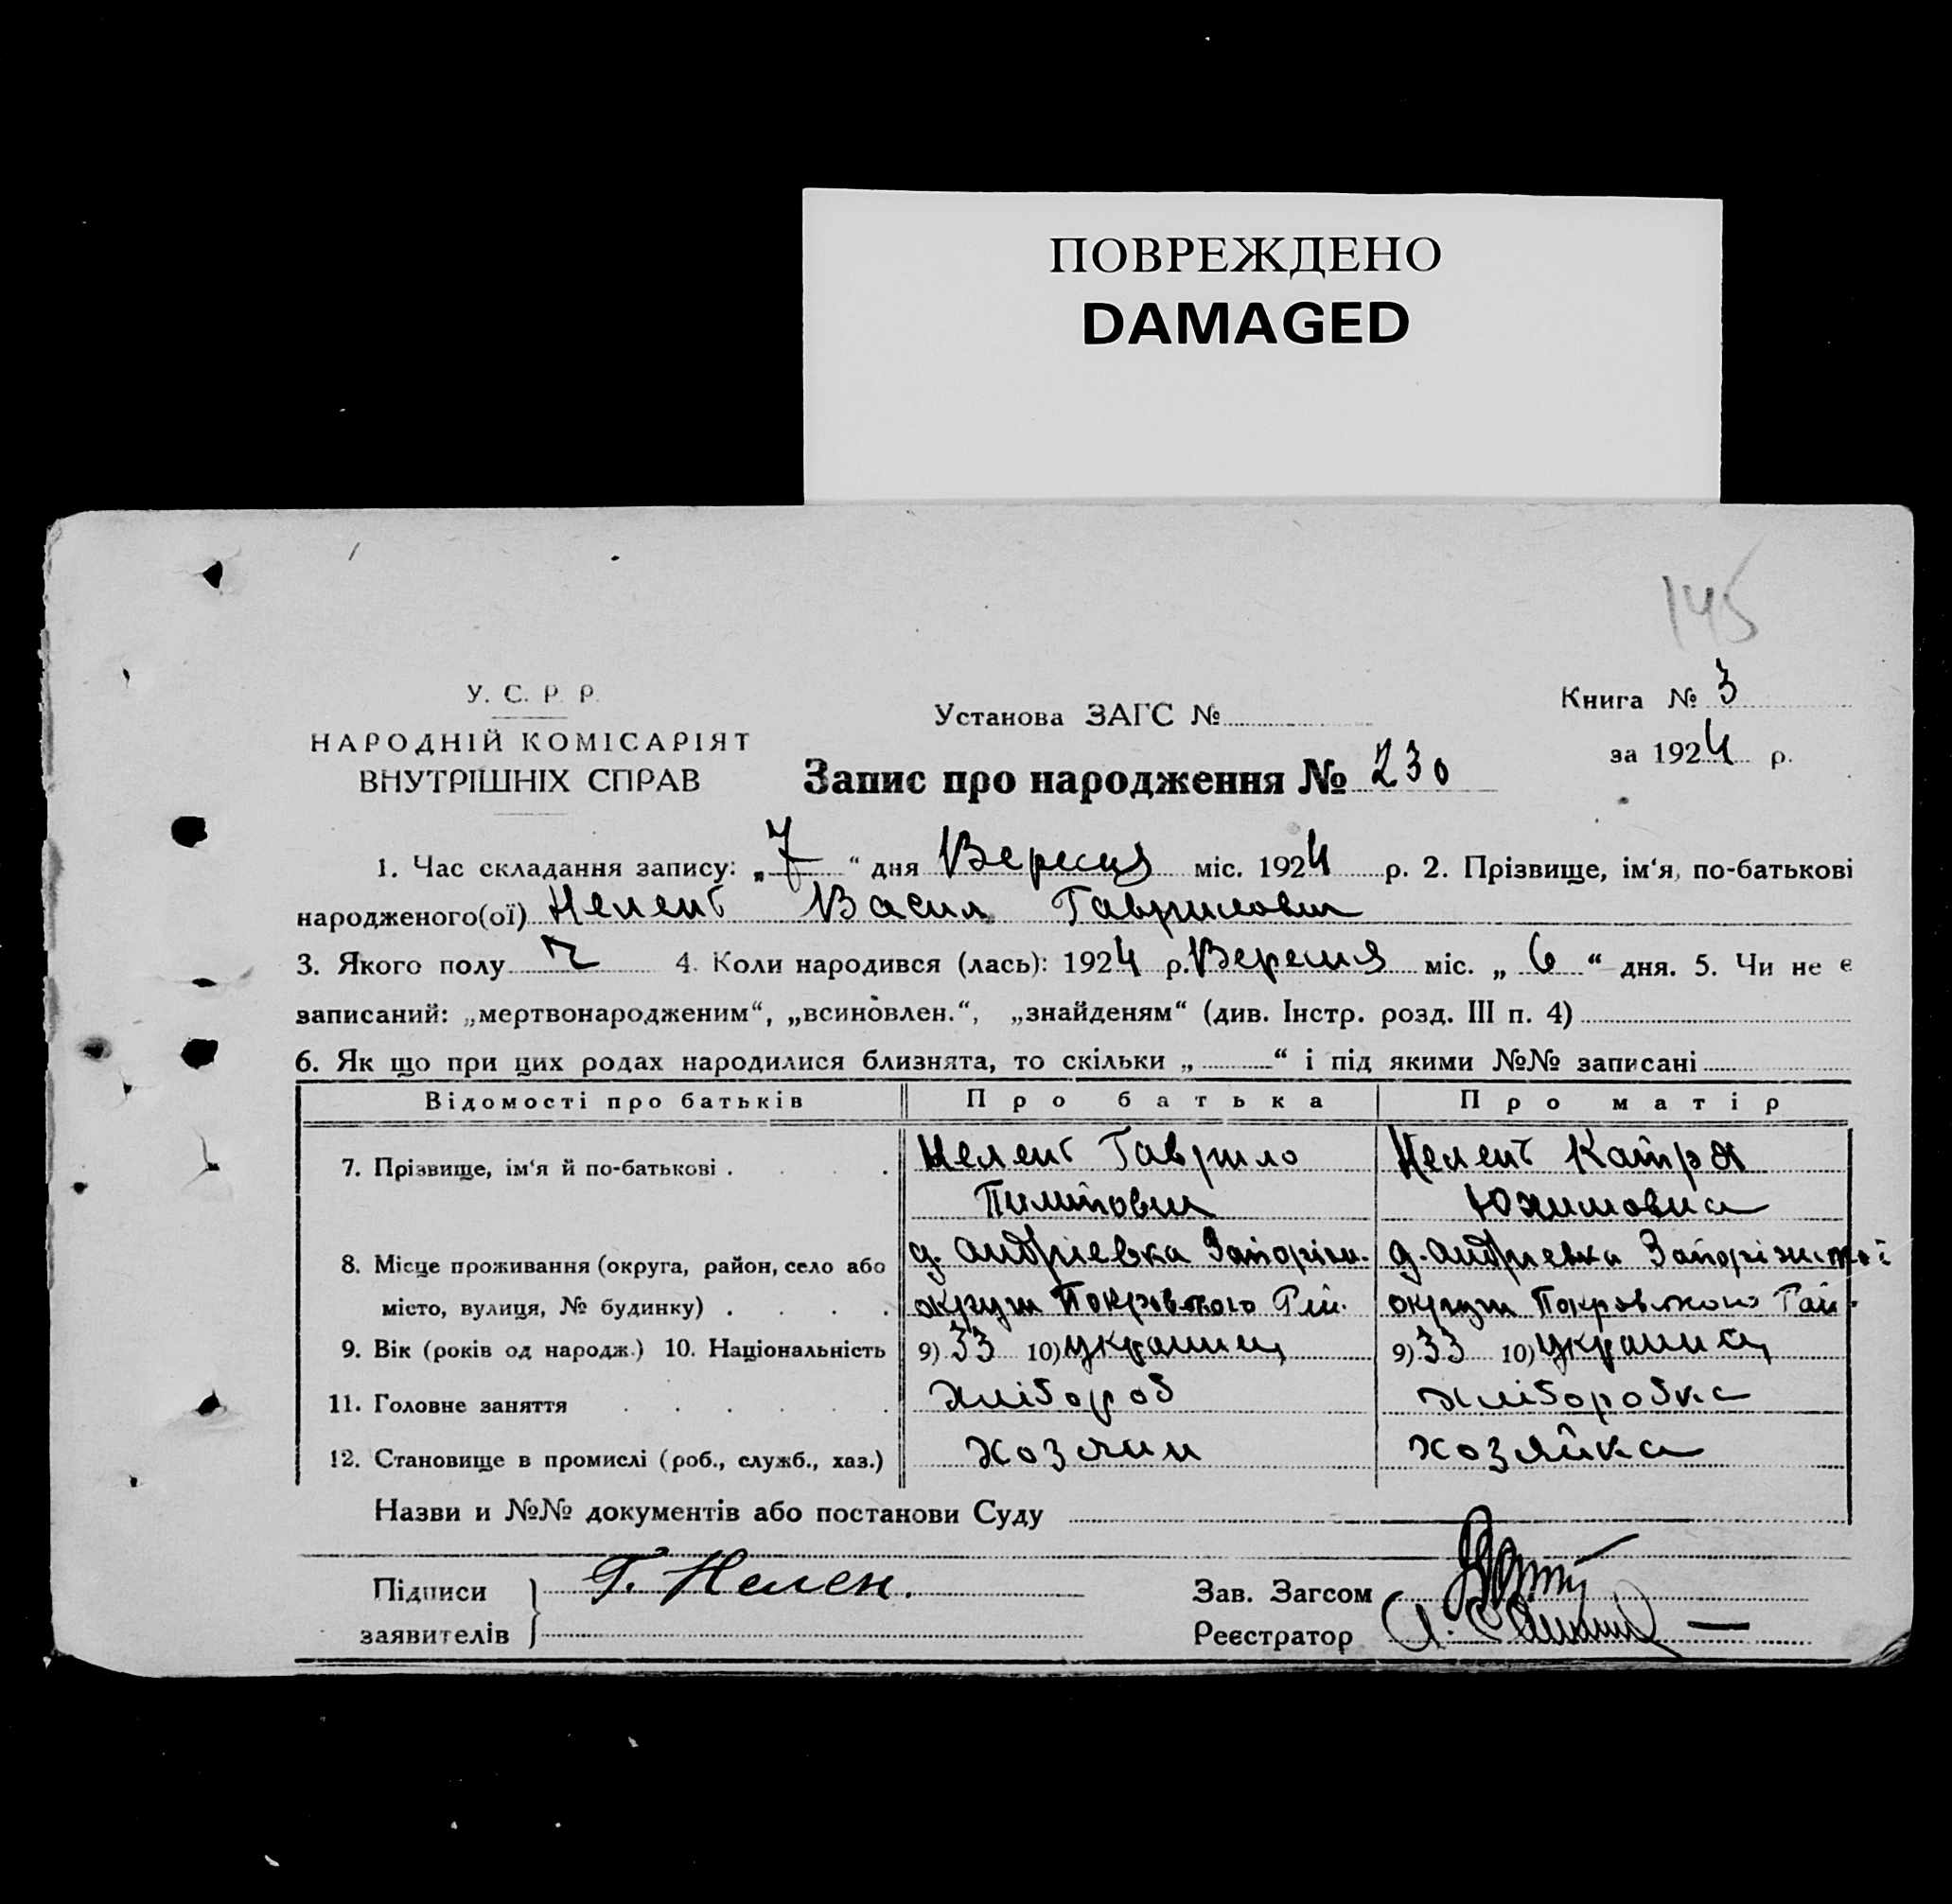 ПОВРЕЖДЕНО
DAMAGED
145
У. С. Р. Р.
НАРОДНІЙ КОМІСАРІЯТ
ВНУТРІШНІХ СПРАВ
Установа ЗАГС №
Книга № 3
за 1924 р.
Запис про народження № 230
1. Час складання запису: „7“ дня Вересця міс. 1924 р. 2. Прізвище, ім‘я, по-батькові
народженого(ої) Нелепт Васил Гаврилович
3. Якого полу ч 4. Коли народився (лась): 1924 р. Вересня міс. „6“ дня. 5. Чи не є
записаний: „мертвонародженим“, „всиновлен.“, „знайденям“ (див. Інстр. розд. III п. 4)
6. Як що при цих родах народилися близнята, то скільки „ “ і під якими №№ записані
Відомості про батьків Про батька Про матір
7. Прізвище, ім‘я й по-батькові . Гаврило Катря
Пилипович Юхимовна
8. Місце проживання (округа, район, село або д. Андріевка Запоріж. д. Андриевка Запоріжської
місто, вулиця, № будинку) . округи Покровского Рай. округи Покровского Рай.
9. Вік (років од народж.) 10. Національність 9) 33 10) украинец 9) 33 10) украинец
11. Головне заняття хлібороб хлібооробка
12. Становище в промислі (роб., служб., хаз.) хозяин хозяйка
Назви и №№ документів або постанови Суду
Підписи Г. Нелеп. Зав. Загсом
заявителів Реєстратор